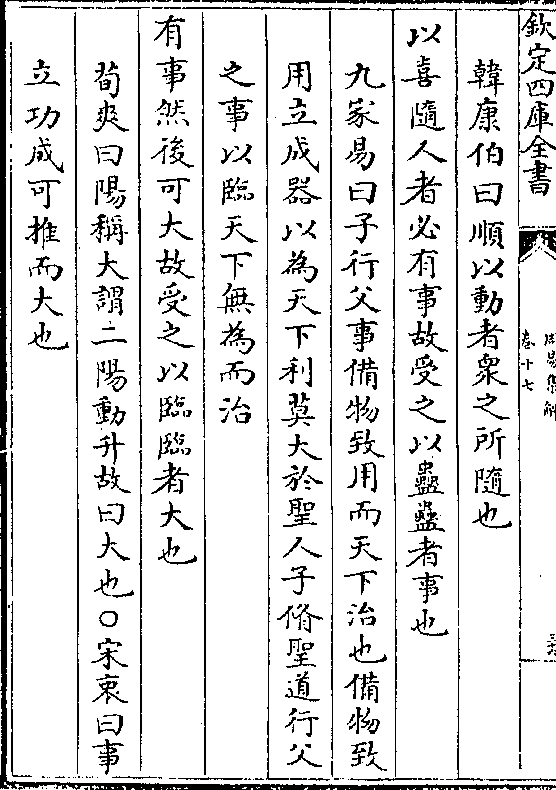 欽定四庫全書
周易集解
卷十七
韓康伯曰順以動者衆之所隨也
以喜隨人者必有事故受之以蠱蠱者事也
九家易曰子行父事備物致用而天下治也備物致
用立成器以為天下利莫大於聖人子脩聖道行父
之事以臨天下無為而治
有事然後可大故受之以臨臨者大也
荀爽曰陽稱大謂二陽動升故曰大也○宋衷曰事
立功成可推而大也